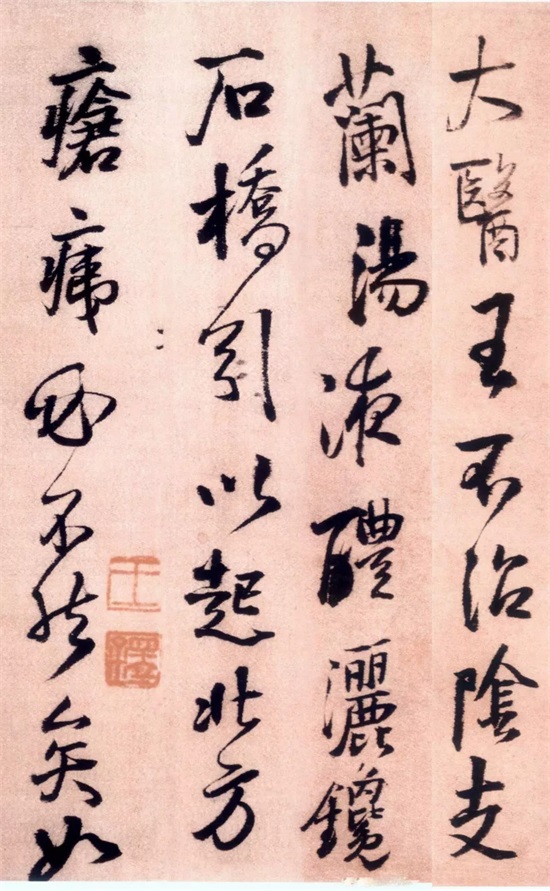 大醫王不治陰支
蘭湯液醴灑鑱
石橋引以起北方
瘡痏必不能矣如
王鐸